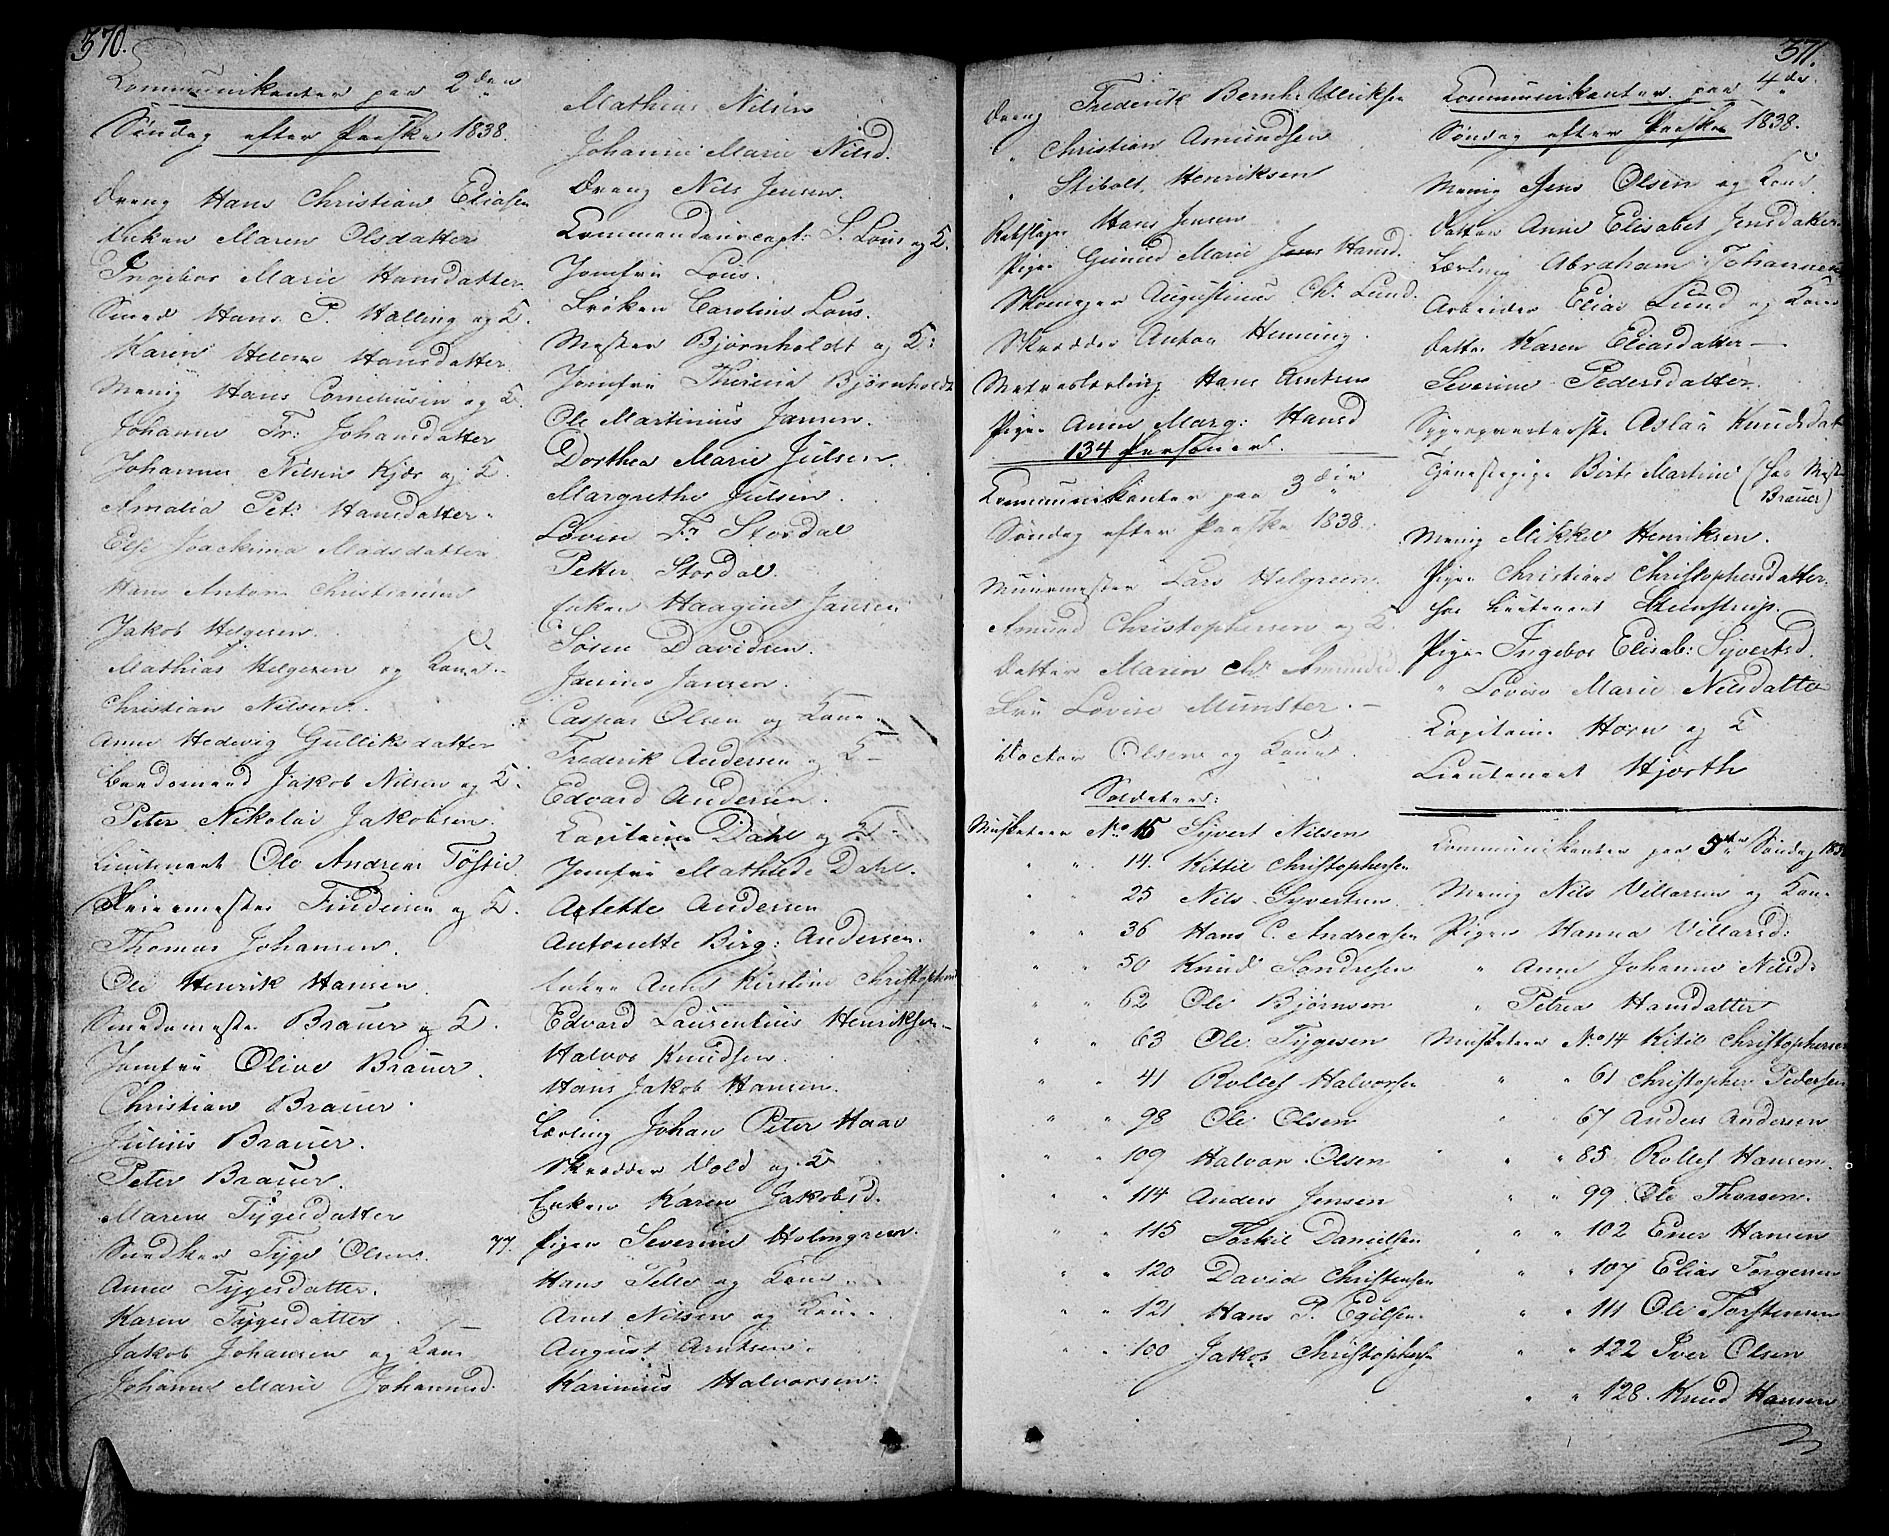 370.
Kommunikanter paa 2den
Søndag efter Paaske 1838.
Dreng Hans Christian Eliasen
Enken Maren Olsdatter
Ingebor Marie Hansdatter
Smed Hans P. Halling og K.
Karen Helene Hansdatter
Menig Hans Corneliusen og K.
Johanne Fr: Johansdatter
Johannes Nilsen Kjær og K.
Amalia Pet: Hansdatter
Else Joachima Madsdatter
Hans Anton Christiansen
Jakob Helgesen.
Mathias Helgesen og Kone
Christian Nilsen
Anne Hedevig Gulliksdatter
Jakob Nilsen og K.
Peter Nikolai Jakobsen.
Lieutenant Ole Andreas
Skrivermester og K.
Thomas Johansen.
Ole Henrik Hansen.
Smedemester Brauer og K.
Jomfru Olive Brauer.
Christian Brauer.
Julius Brauer.
Peter Brauer.
Maren Tygesdatter
Tyge Olsen. 77.
Anne Tygesdatter.
Karen Tygesdatter
Jakob Johansen og Kone
Johanne Marie Johannesd.
Mathias Nilsen
Johanne Marie Nilsd.
Dreng Nils Jensen.
Kommandeurcapt: S. Lous og K.
Jomfru Lous.
Frøken Caroline Lous.
Mester Bjørnholdt og K:
Jomfru Thrine Bjørnholdt
Ole Martinius Jansen.
Dorthea Marie Julsen.
Margrethe Julsen.
Lovise Fr Stordal
Petter Stordal.
Enken Haagine Jansen
Søren Davidsen.
Janine Jansen.
Caspar Olsen og Kone.
Frederik Andersen og K
Edvard Andersen.
Kapitaine Dahl og K.
Jomfru Mathilde Dahl.
Andersen
Antonette Birg: Andersen.
Enken Anne Kirstine
Edvard Laurentius Henriksen
Halvor Knudsen.
Hans Jakob Hansen.
Lærling Johan Peter Haar
Skrædder Vold og K
Enken Karen Jakobsd.
Pigen Severine Holmgreen.
Hans Telle og Kone.
Arnt Nilsen og Kone.
August Arntsen.
Karinius Halvorsen.
371.
Dreng Frederik Bernh: Ulriksen
" Christian Amundsen
" Stibolt Henriksen
Rebslager Hans Jensen
Pige Gunild Marie Hansd.
Skomager Augustinus Ch. Lund.
Skrædder Anton Henning.
Matroslærling Hans Arntsen
Pige Anne Marg: Hansd
134 Personer.
Kommunikanter paa 3die
Søndag efter Paaske 1838.
Muurmester Lars Helgesen.
Amund Christophersen og K.
Datter Maren Ch. Amundsd
Fru Lovise Münster.
Doctor Olsen og Kone.
Soldater:
Musketeer No 15 Syvert Nilsen
" " 14. Kittil Christophersen
" " 25 Nils Syvertsen.
" " 36 Hans C. Andreasen
" " 50 Knud Sondresen
" " 62 Ole Bjørnsen
" " 63 Ole Tygesen
" " 41 Rollef Halvorsen
" " 98 Ole Olsen
" " 109 Halvor Olsen
" " 114 Anders Jensen
" " 115 Torkil Danielsen
" " 120 David Christensen
" " 121 Hans P. Egilsen.
" " 100 Jakob Christophersen
Kommunikanter paa 4de
Søndag efter Paaske 1838.
Menig Jens Olsen og Kone
Datter Anne Elisabet Jensdatter
Lærling Abraham Johannesen
Arbeider Elias Lund og Kone
Datter Karen Eliasdatter
Severine Pedersdatter.
Aslau Knudsdat
Tjenestepige Birte Martine (hos Mest
Brauer)
Menig Mikkel Henriksen.
Pige Christiane Christophersdatter
hos Lieutenant Steinstrup.
Pige Ingebor Elisab: Syvertsd.
" Lovise Marie Nilsdatter
Kapitaine Horn og K
Lieutenant Hjorth
Kommunikanter paa 5te Søndag 1838
Menig Nils Villarsen og Kone
Pigen Hanna Villarsd:
" Anne Johanne Nilsd:
" Petrea Hansdatter
Musketeer No 14 Kittil Christophersen
" " 61 Christopher Pedersen
" " 67 Anders Andersen
" " 85 Rollef Hansen.
" " 99 Ole Thorsen.
" " 102 Ener Hansen
" " 107 Elias Torgersen
" " 111 Ole Torstensen
" " 122 Iver Olsen
" " 128. Knud Hansen